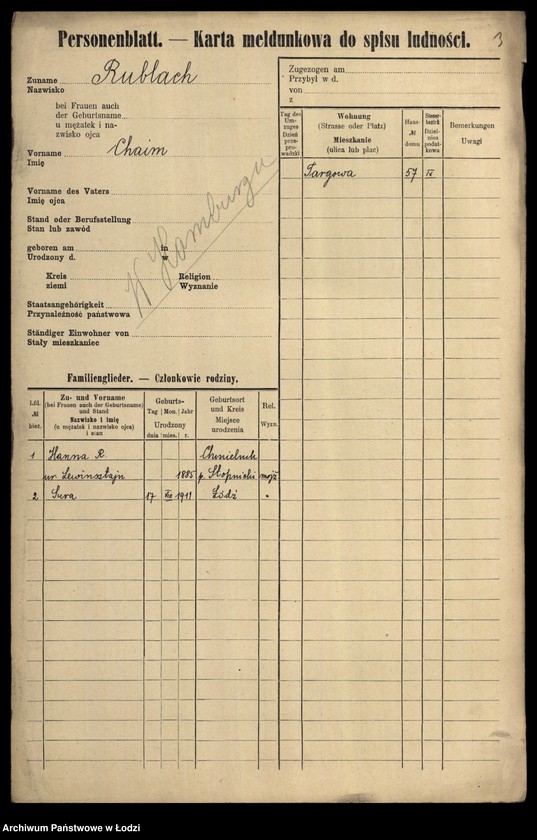 Personenblatt. — Karta meldunkowa do spisu ludności.
3
Zuname Rublach
Nazwisko
bei Frauen auch
der Geburtsname
u mężatek i na-
zwisko ojca
Vorname Chaim
Imię
Vorname des Vaters
Imię ojca
Stand oder Berufsstellung
Stan lub zawód
geboren am in
Urodzony d. w
W Hamburgu
Kreis Religion
ziemi Wyznanie
Staatsangehörigkeit
Przynależność państwowa
Ständiger Einwohner von
Stały mieszkaniec
Zugezogen am
Przybył w d.
von
z
Tag des Um-zuges Dzień prze-pro-wadzki
Wohnung
(Strasse oder Platz)
Mieszkanie
(ulica lub plac)
Haus-
№
domu
Steuer-bezirk Dziel-nica podat-kowa
Bemerkungen
Uwagi
Targowa 57 IX
Familienglieder. — Członkowie rodziny.
Lfd.
№
bież.
Zu- und Vorname
(bei Frauen auch der Geburtsname)
und Stand
Nazwisko i imię
(u mężatek i nazwisko ojca)
i stan
Geburts-
Tag Mon. Jahr
Urodzony
dnia mies. r.
Geburtsort
und Kreis
Miejsce
urodzenia
Rel.
Wyzn.
1 Hanna R. Chmielnik
ur. Lewinsztajn 1885 p. Stopnicki mojż
2 Sura 17 1911 Łódź "
Archiwum Państwowe w Łodzi